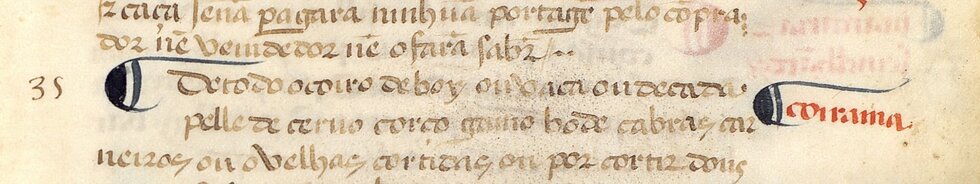 z caça senã pagara ninhuã portagẽ pelo cõpra
dor nẽ vendedor nẽ o farã sabr̃
35 De todo o coiro de boy ou vaca ou de cada
pelle de ceruo corço gamo bode cabras car
neiros ou ovelhas cortidas ou por cortir dous
coirama